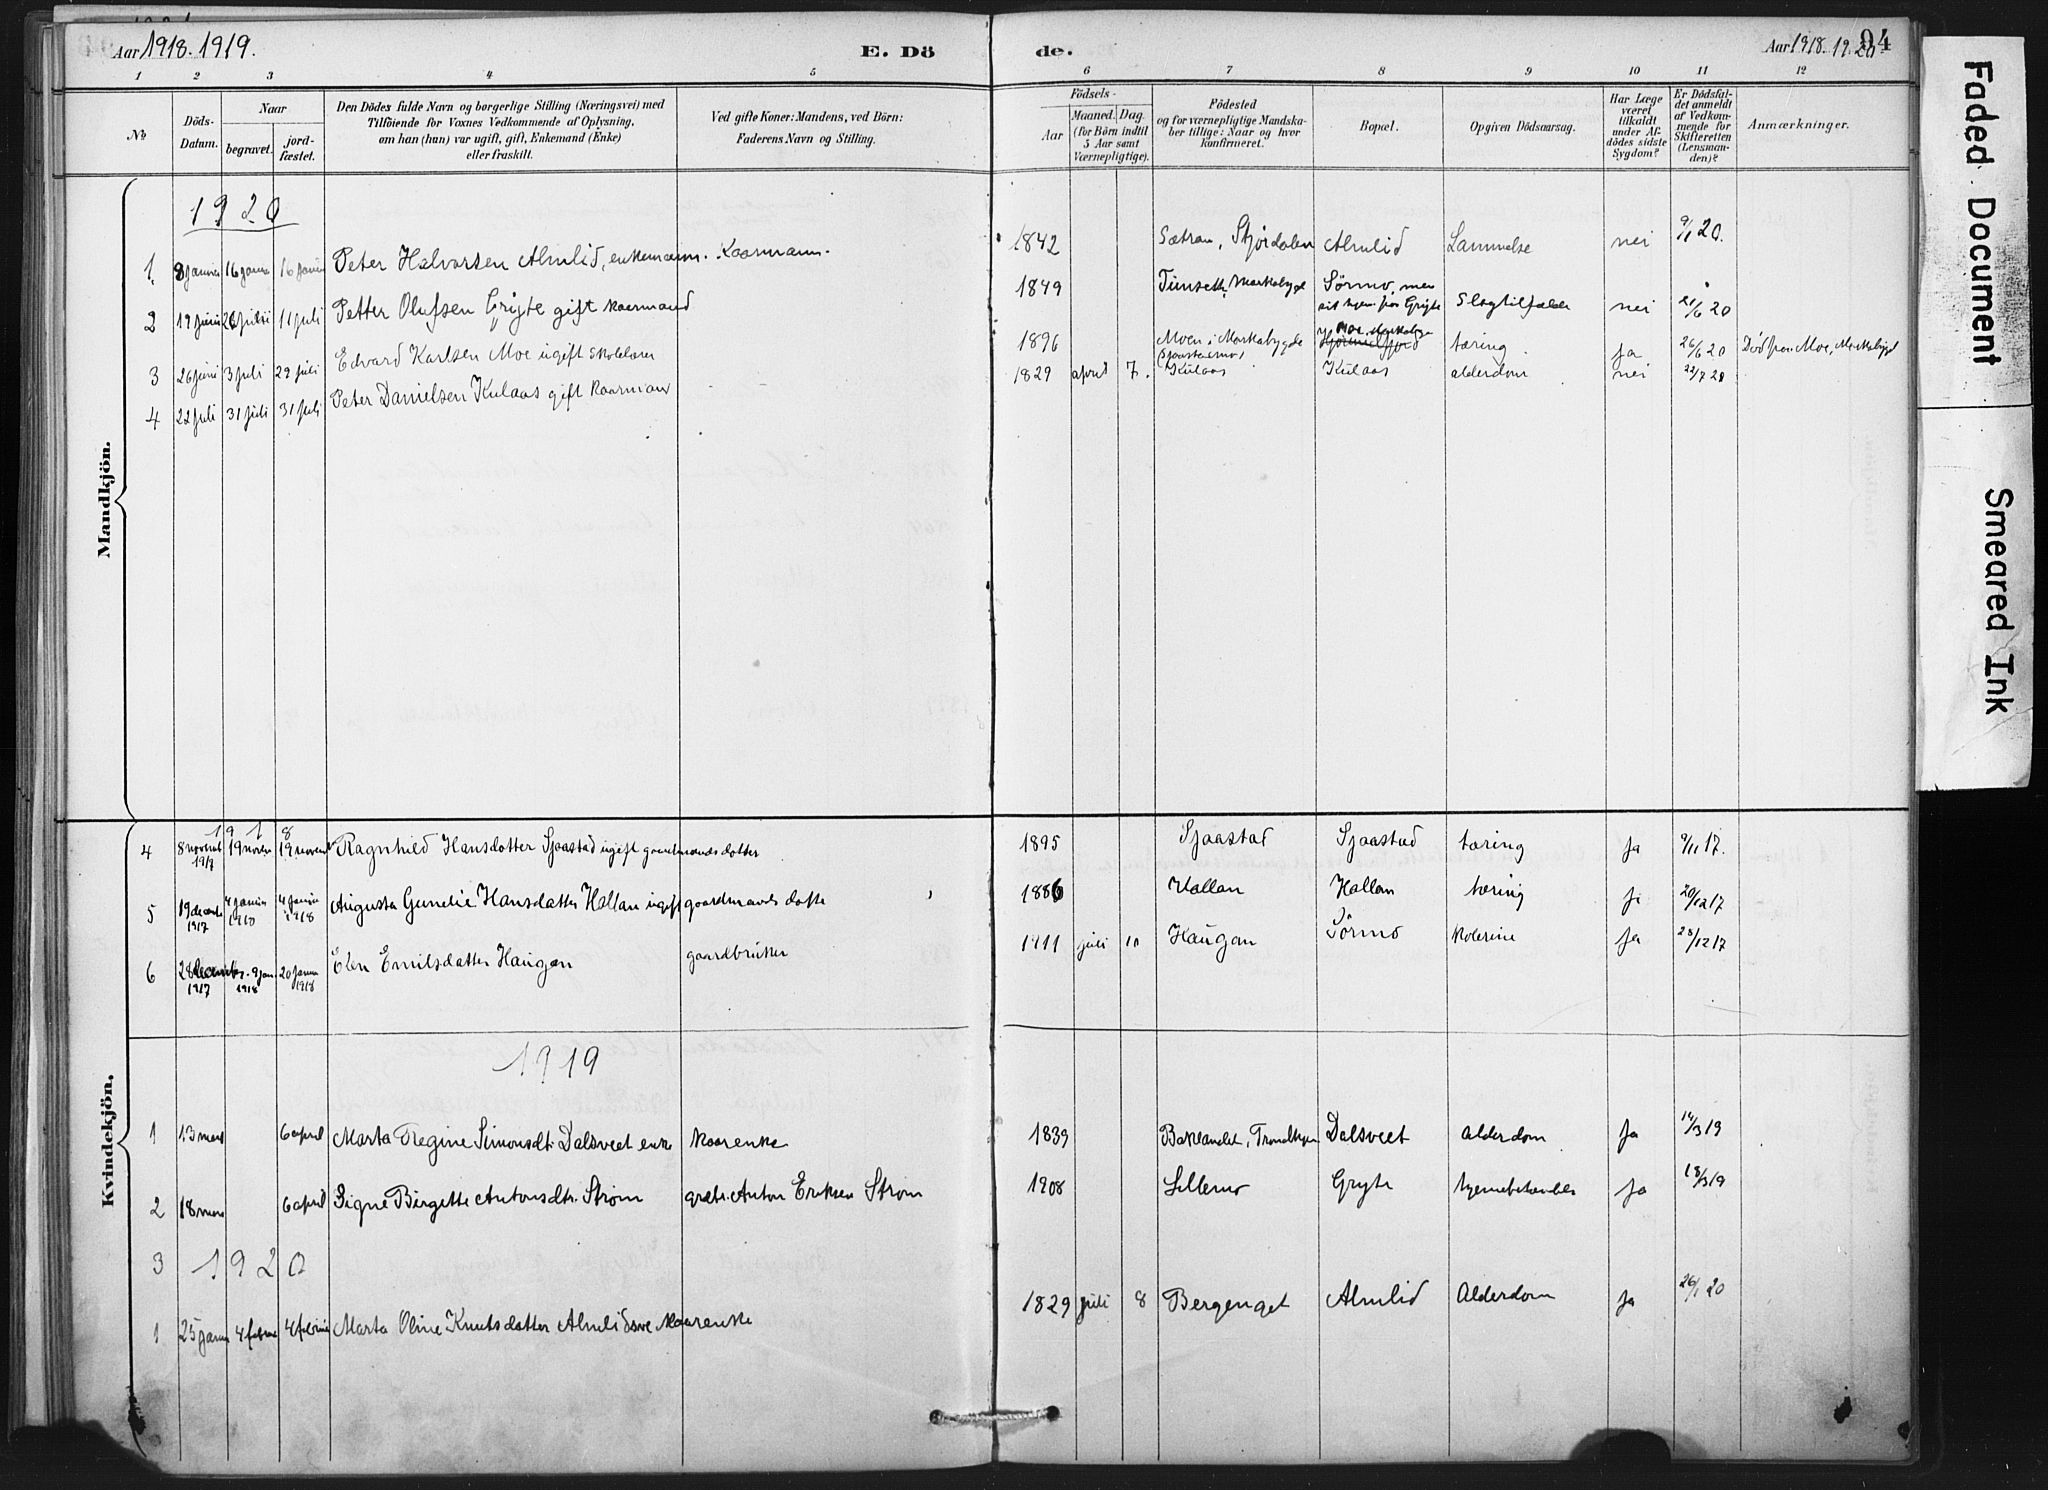 Aar 1918. 1919.
E. Dö
de.
Aar 1918. 19. 20
94
1 2 3 4 5 6 7 8 9 10 11 12
No
Döds-Datum.
Naar
begravet.
jord-fæstet.
Den Dödes fulde Navn og borgerlige Stilling (Næringsvei) med
Tilföiende for Voxnes Vedkommende af Oplysning,
om han (hun) var ugift, gift, Enkemand (Enke)
eller fraskilt.
Ved gifte Koner: Mandens, ved Börn:
Faderens Navn og Stilling.
Födsels-
Aar
Maaned. Dag.
(for Börn indtil
5 Aar samt
Værnepligtige).
Födested
og for værnepligtige Mandska-
ber tillige: Naar og hvor
konfirmeret.
Bopæl.
Opgiven Dödsaarsag.
Har Læge
været
tilkaldt
under Af-
dödes sidste
Sygdom?
Er Dödsfal-
det anmeldt
af Vedkom-
mende for
Skifteretten
(Lensman-
den)?
Anmærkninger.
Mandkjön.
1920
1. 8 januar 16 januar 16 januar Peter Halvorsen Almlid, enkemann. Kaarmann. 1842 Sætran, Stjørdalen Almlid Lammelse nei 9/1 20.
2 19 juni 26 juni 11 juli Petter Olufsen Gryte gift kaarmand 1849 Tunseth, Markabygd Sörmo, men sit hjem paa Gryte Slagtilfælde nei 21/6 20
3 26 juni 3 juli 29 juli Edvard Karlsen Moe ugift skolelærer 1896 Moen i Markabygde Moe, Markabygd tæring ja 26/6 20 Död paa Moe, Markabygd
4 22 juli 31 juli 31 juli Peter Danielsen Kulaas gift kaarman 1829 april 7. Kulaas Kulaas alderdom nei 22/7 20
Kvindekjön.
1918
4 8 novemb 1917 19 novem 19 novem Ragnhild Hansdatter Sjaastad ugift gaardmandsdatter 1895 Sjaastad Sjaastad tæring ja 9/11 17.
5 19 decemb 1917 4 januar 4 januar 1918 Augusta Gunelie Hansdatter Hallan ugift gaardmands datte 1886 Hallan Hallan tæring ja 20/12 17
6 28 december 1917 9 jan 1918 20 januar 1918 Elen Emilsdatter Haugan gaardbruker 1911 juli 10 Haugan Sörmo kolerine ja 28/12 17
1919
1 13 mars 6 april Marta Regine Simonsdt. Dalsveet enke kaarenke 1839 Baklandet, Trondhjem Dalsveet Alderdom ja 14/3 19
2 18 mars 6 april Signe Birgitte Antonsdtr. Strøm grdbr. Anton Eriksen Strøm 1908 Lillemo Gryte ja 18/3 19
3 1920
1 25 januar 4 februar 4 februar Marta Oline Knutsdatter Almlid kaarenke 1829 juli 8 Bergenget Almlid Alderdom ja 26/1 20
Faded Document
Smeared Ink